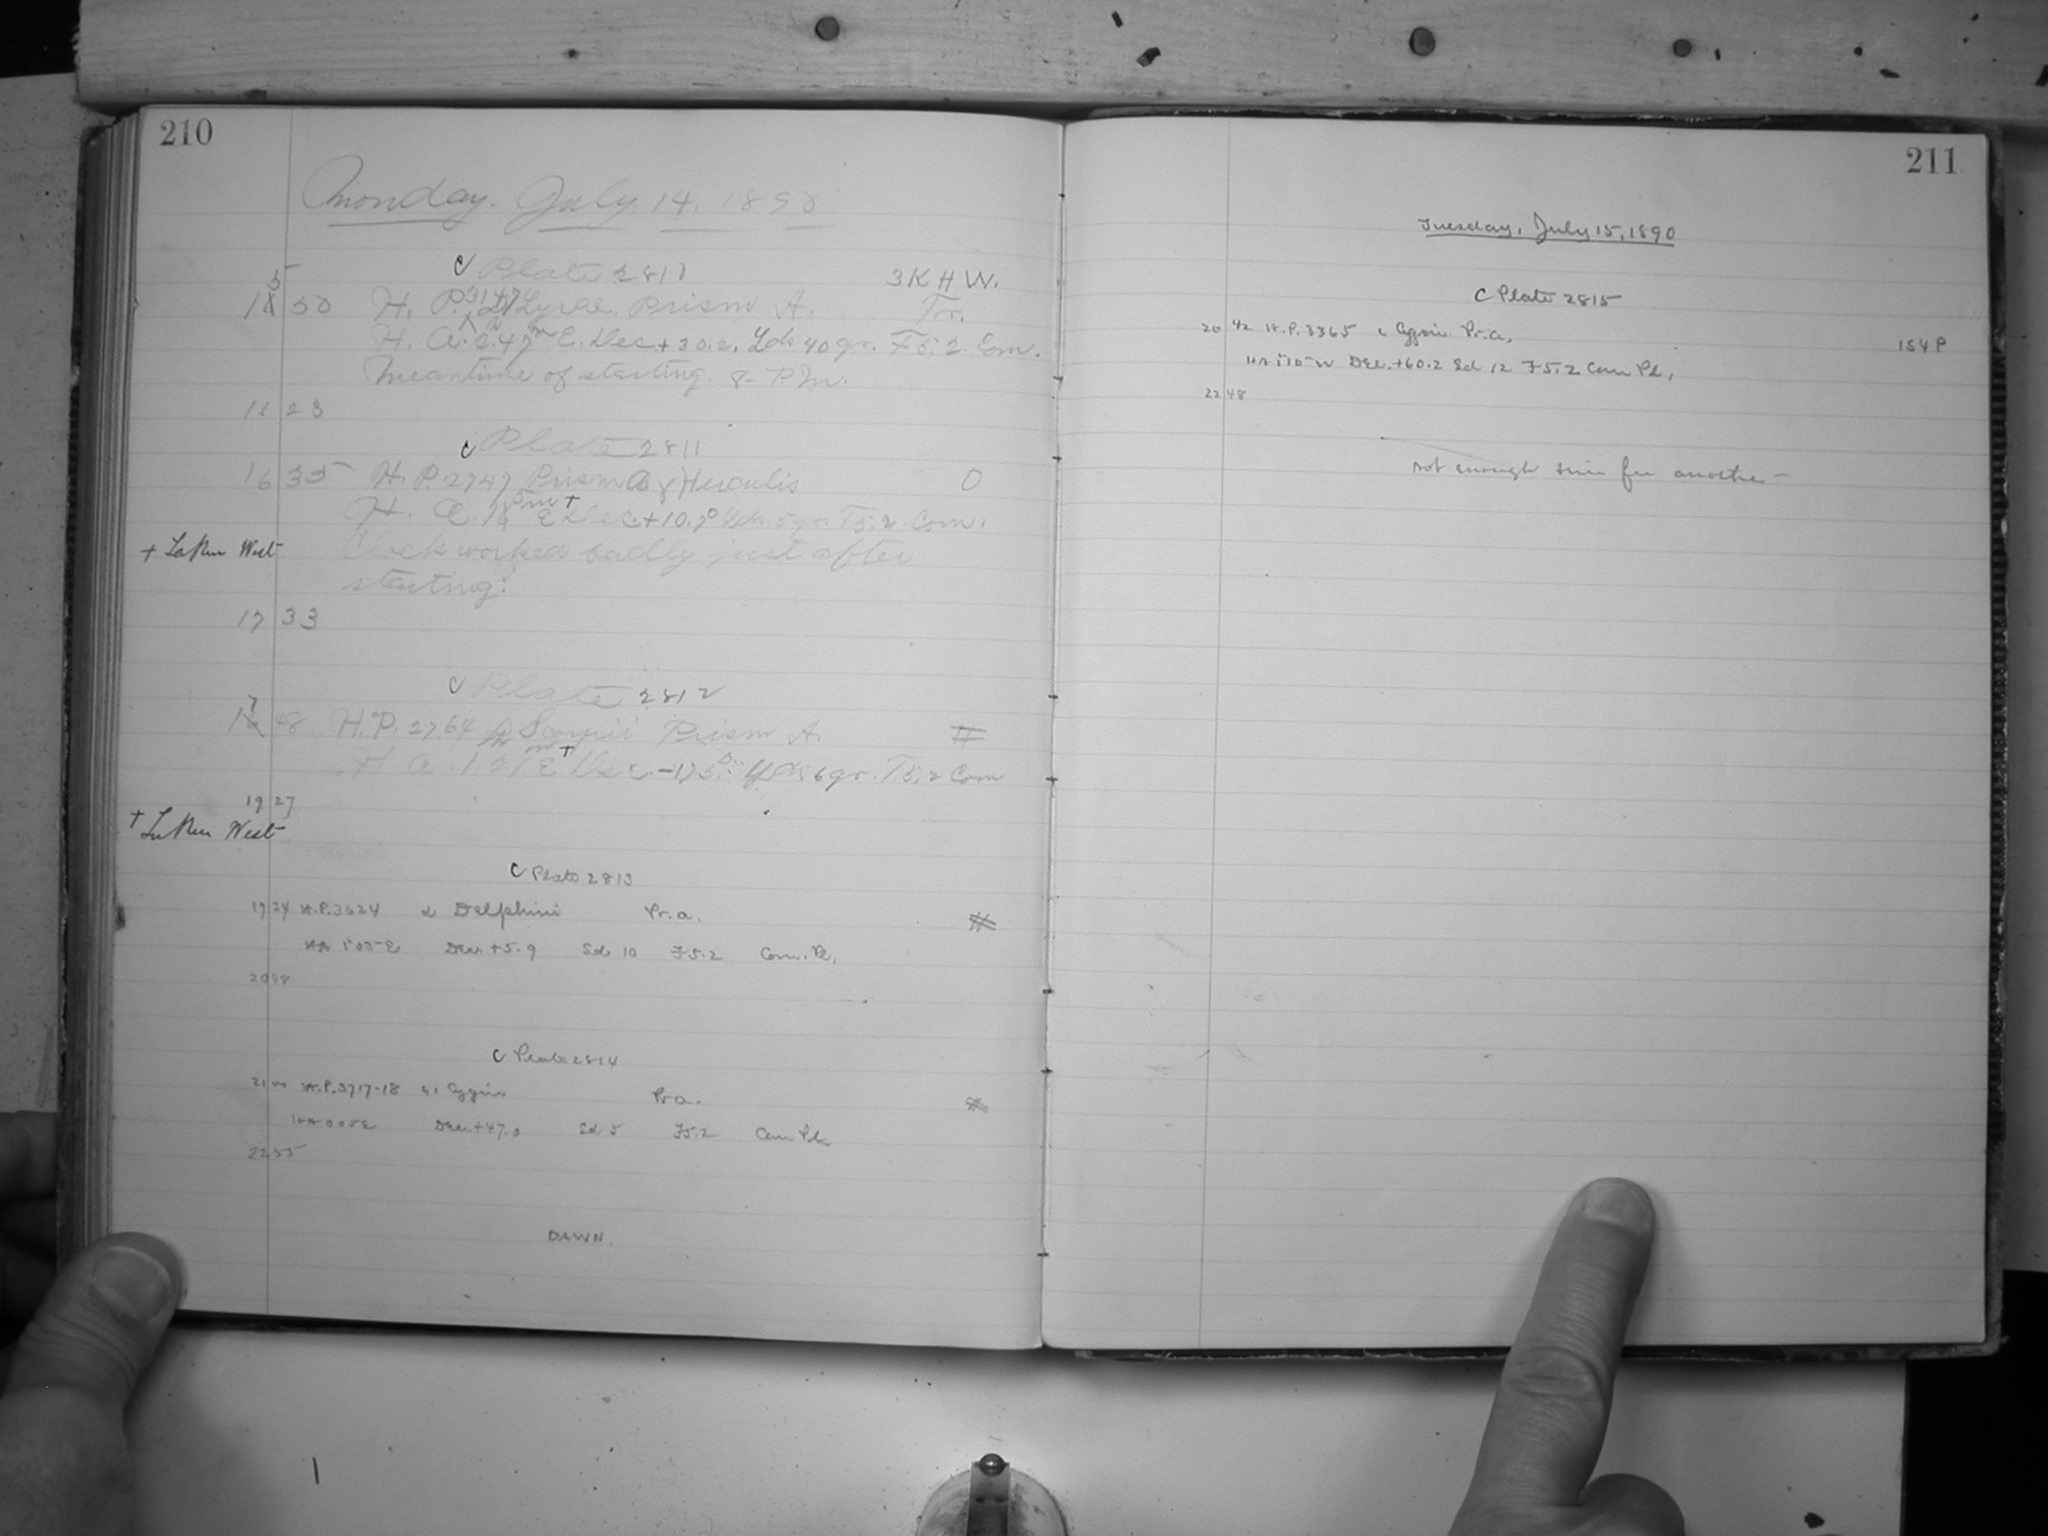 210
Monday. July. 14. 1890
C Plate 2810 3 K H W.
15 50 H. P. 3147 Lyrae Prism A. Tr.
H. A. 2.47m E. Dec + 30.2. Sds 40 gr. F 5.2 Com.
Meantime of starting. 8- P.M.
16 23
C Plate 2811
16 35 H. P. 2747 Prism A γ Herculis O
H. A. 5m E + Dec + 10.7° 5 gr. F 5.2 Com.
+ Taken West Clock worked badly just after
starting.
17 33
C Plate 2812
17 48 H. P. 2764 Scorpii Prism A. #
H A. 1.21m E + Dec. -17.5° 6 gr. F. 5.2 Com
19 27
+ Taken West
C Plate 2813
19 34 H.P. 3624 α Delphini Pr. a. #
HA 1 05 E Dec. +5.9 Sd 10 F 5.2 Com. Pl.
20 48
C Plate 2814
21 00 H.P. 3717-18 61 Cygni Pr a. #
HA 0 05 E Dec. +47.0 Sd 5 F5.2 Com Pl.
22 55
DAWN.
211
Tuesday, July 15, 1890
C Plate 2815
20 42 H.P. 3365 ι Cygni Pr. a. 154 P
HA 1 10 W Dec. +60.2 Sd 12 F5.2 Com Pl.
22 48
not enough time for another –